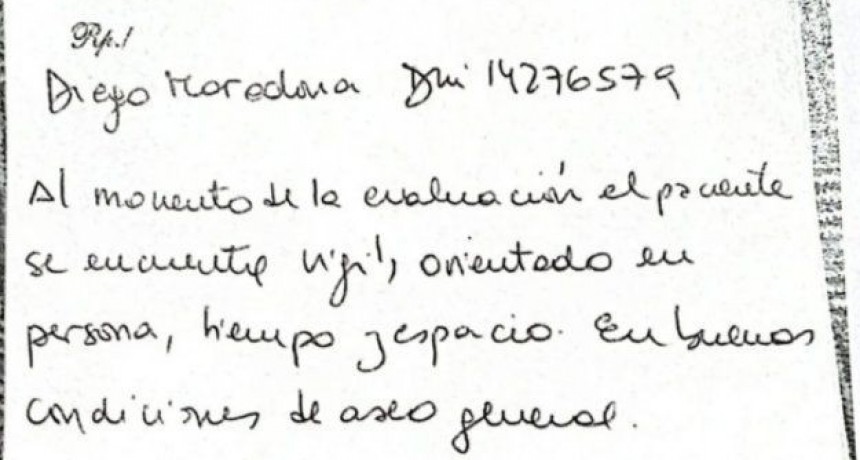 Rp.!
Diego Maradona Dni 14276579
Al momento de la evaluación el paciente
se encuentra vigil, orientado en
persona, tiempo y espacio. En buenas
condiciones de aseo general.